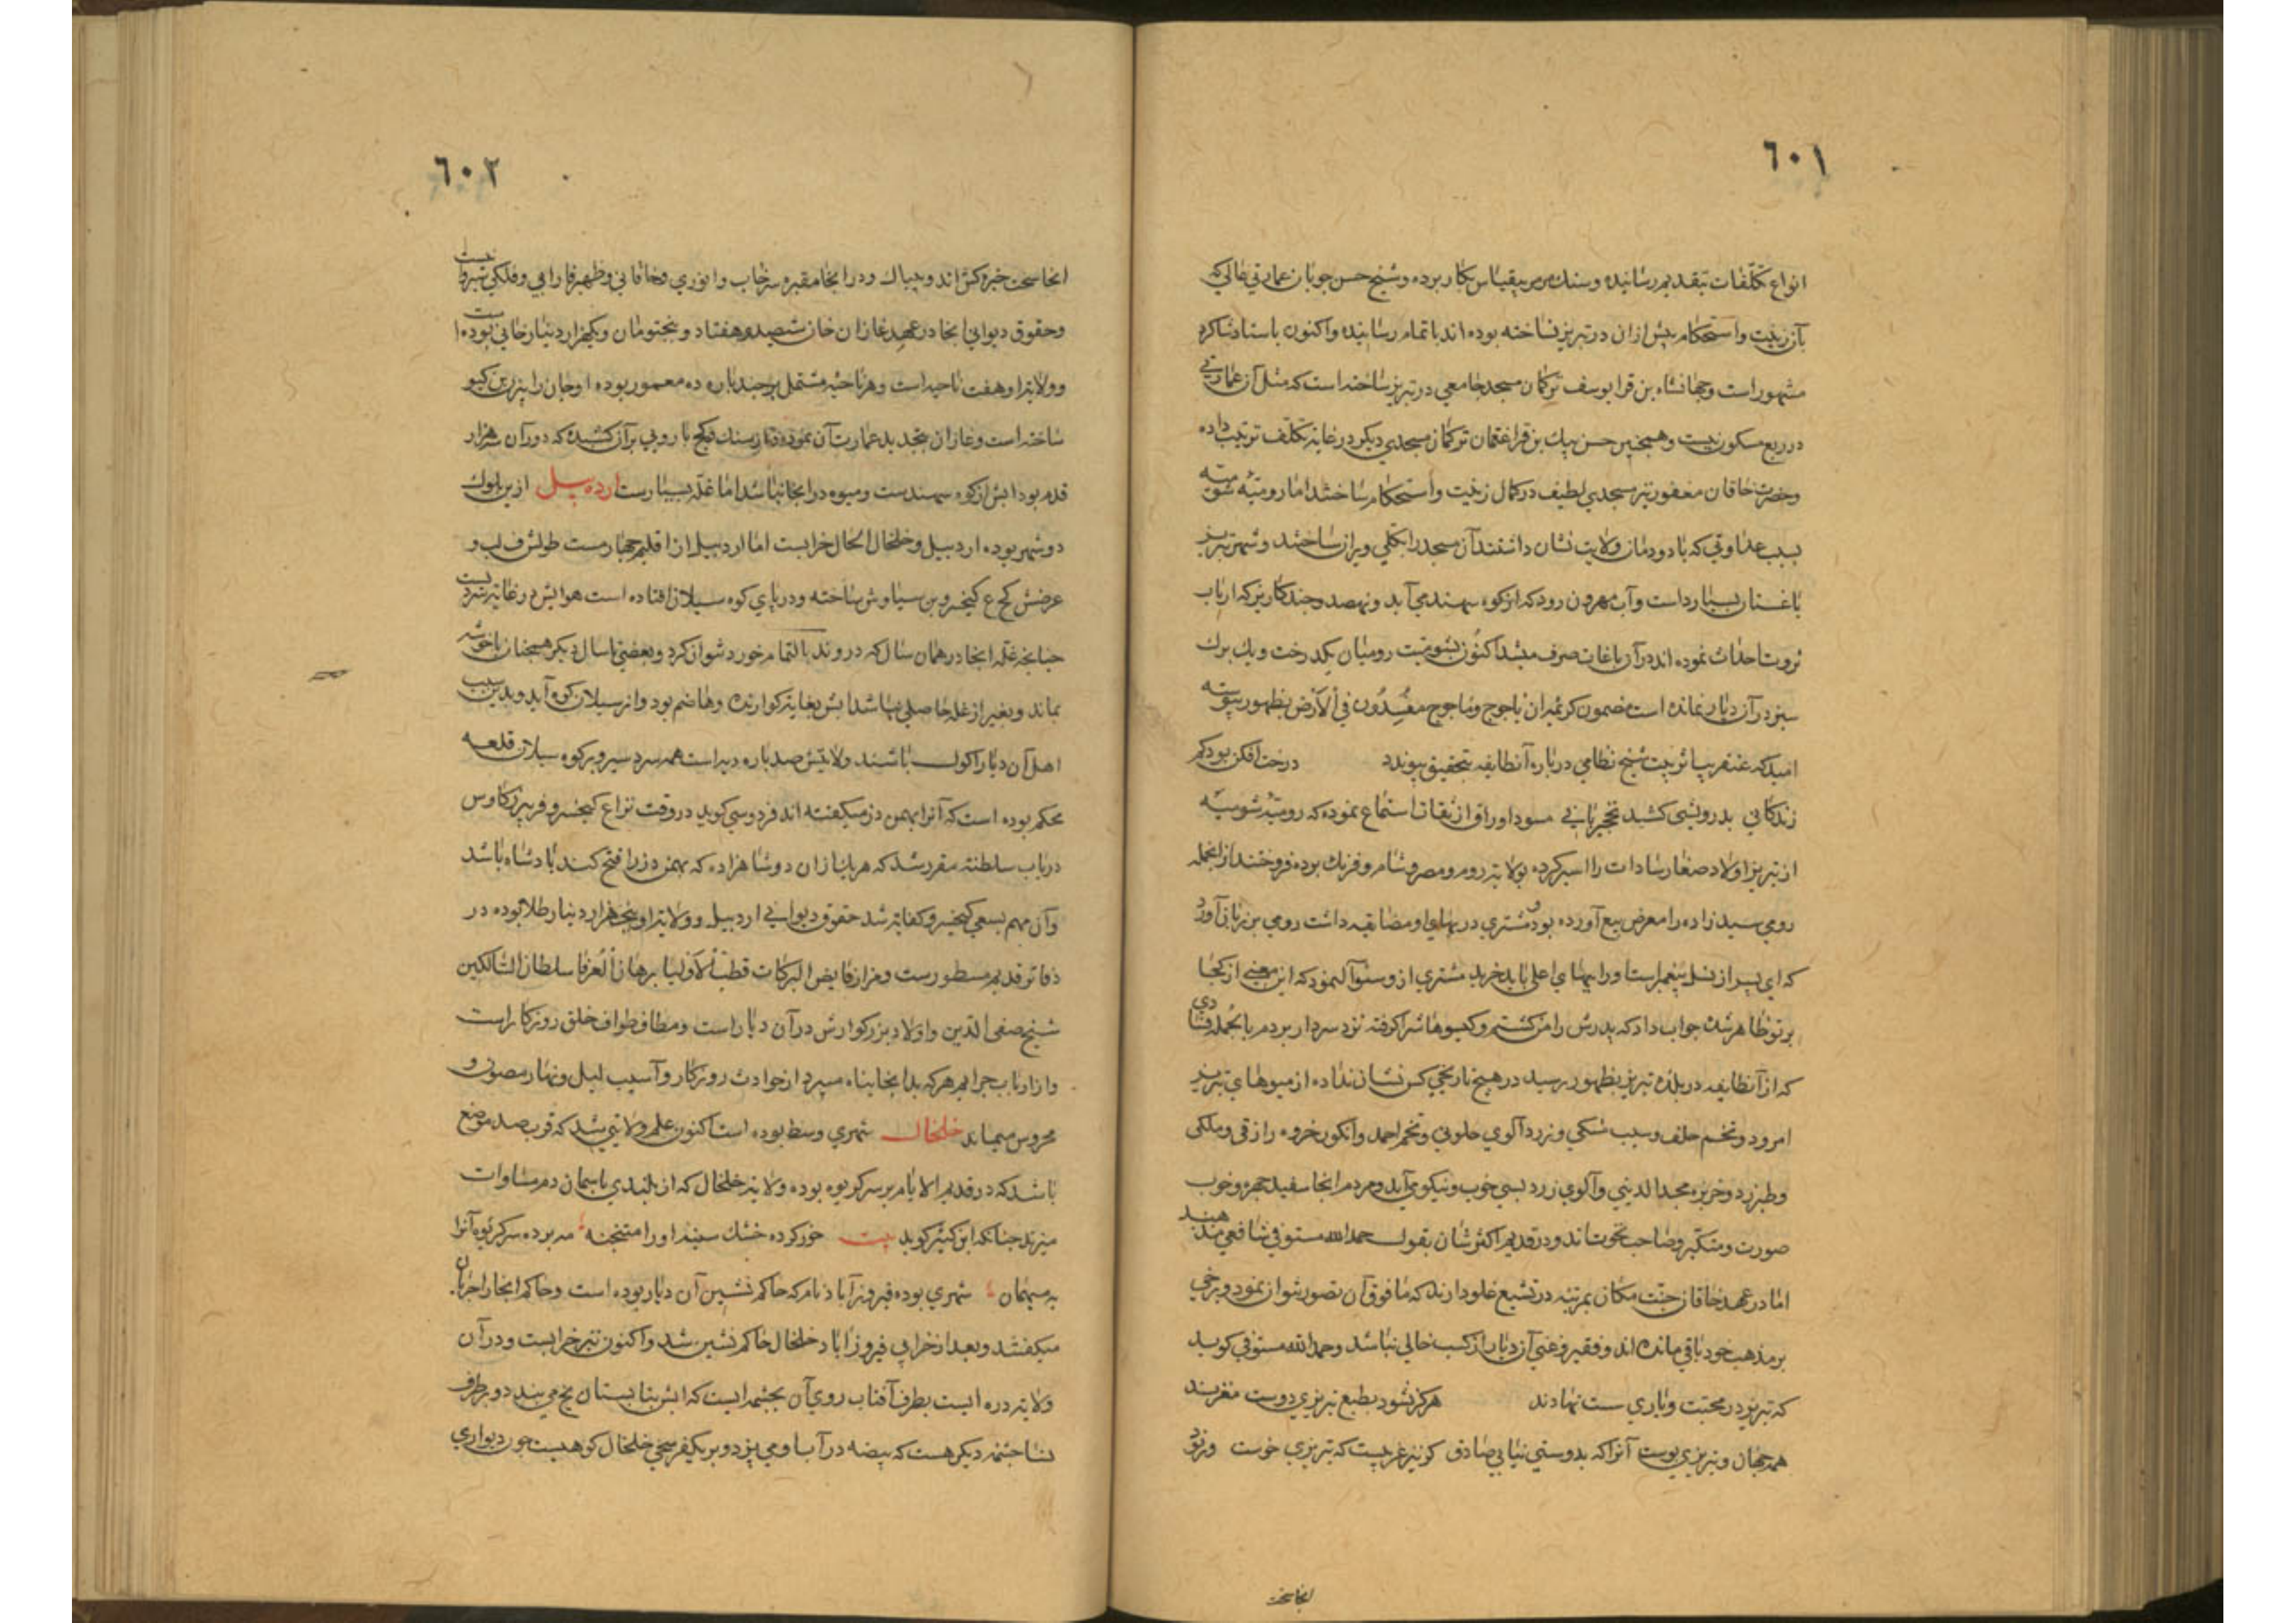 ٦٠١
انواع تکلفات بتقدیم رسانیده و سنك مرمر بیقیاس بکار برده و شیخ حسن جوبان عمارتی عالی که
بآن زینت و استحکام پیش ازان در تبریز نساخته بوده اند باتمام رسانیده و اکنون باستاد شاکرد
مشهور است و جهانشاه بن قرا یوسف ترکمان مسجد جامعی در تبریز ساخته است که مثل آن عمارتی
در ربع مسکون نیست و همچنین حسن بیك بن قرا عثمان ترکمان مسجدی دیکر در غایة تکلف ترتیب داده
و حضرت خاقان مغفور نیز مسجدی لطیف در کمال زینت و استحکام ساختند اما رومیّه شومیّه
بسبب عداوتی که با دودمان ولایت نشان داشتند آن مسجد را بکلی ویران ساختند و شهر تبریز
باغستان بسیار دارد است و آب مهرون رود که از کوه سهند می آید و نهصد و جند کاریز که ارباب
ثروت احداث نموده اند در آن باغات صرف میشد اکنون بشومیت رومیان یکدرخت و یك برك
سبز در آن دیار نمانده است مضمون کریمه ان یاجوج و ماجوج مفسدون فی الارض بظهور پیوسته
امید که عنقریب اثر بیت شیخ نظامی درباره آنطایفه بتحقیق پیوندد درخت افکن بود کم
زندکانی بدرویشی کشد نخجیربانی مسود اوراق از ثقات استماع نموده که رومیّه شومیّه
از تبریز اولاد صغار سادات را اسیر کرده بولایة روم و مصر و شام و فرنك بوده فروختند ازانجمله
رومی سید زاده را معرض بیع آورده بود و مشتری در بهای او مضایقه داشت رومی بن زبان آورد
که ای پسر از نسل پیغمبر است او را ببهای اعلی باید خرید مشتری ازو سئوال نمود که این معنی از کجا
بر تو ظاهر شده جواب داد که پدرش را من کشتم و کیسوهاشرا کرفته نزد سردار بردم بالجمله فسادی
که از آنطایفه در بلده تبریز بظهور رسید در هیچ تاریخی کس نشان نداده از میوهای تبریز
امرود و تخم خلف و سیب سلکی و زردآلوی حلوانی و تخم احمد و انکور خروه رازقی و ملکی
و طبرزد و خربزه مجدالدینی و آلوی زرد بسی خوب و نیکو می آید و مردم انجا سفید جهره و خوب
صورت و متکبر و صاحب نخوت اند و در قدیم اکثرشان بقول حمدالله مستوفی شافعی مذهبند
اما در عهد خاقان جنّت مکان بمرتبه در تشیع غلو دارند که مافوق آن تصور نتوان نمود و برخی
بر مذهب خود باقی مانده اند و فقیر و غنی آن دیار از کسب خالی نباشد و حمدالله مستوفی کوید
که تبریز در محبّت و یاری سست نهادند هرکز نشود بطبع تبریزی دوست مغزند
همه جهان و تبریزی پوست آنرا که بدوستی نیابی صادق کر نیز غریبست که تبریزی خوست ورنود
انجا سخت
٦٠٢
انجا سخت خیره کش اند و بیباك و در انجا مقبره سرخاب و انوری و خاقانی و ظهیر فاریابی و فلکی شیروانیست
و حقوق دیوانی انجا در عهد غازان خان ششصد و هفتاد و پنجتومان و یکهزار دینار خانی بوده است
و ولایة او هفت ناحیه است و هر ناحیه مشتمل بر جند پاره ده معمور بوده اوجان را بیژن بن کیو
ساخته است و غازان بتجدید عمارت آن نموده و از سنك و کج باروبی بر آن کشیده که دور آن سه هزار
قدم بود آبش از کوه سهندست و میوه در انجا نباشد اما غلّه بسیارست اردبیل ازین بلوك
دو شهر بوده اردبیل و خلخال الحال خرابست اما اردبیل از اقلیم جهارمست طولش ف لب و
عرضش لح ع کیخسرو بن سیاوش ساخته و در پای کوه سبلان افتاده است هوایش در غایة سردیست
جنانجه غلّه انجا در همان سال که دروند بالتمام خورد نتوان کرد و بعضی تا سال دیکر همچنان با خوشه
بماند و بغیر از غله حاصلی نباشد آبش بغایة کوارنده و هاضم بود و از سبلان کوه آید و بدین سبب
اهل آن دیار اکول باشند ولایتش صد پاره دیه است همه سردسیر و بر کوه سبلان قلعه
محکم بوده است که آنرا بهمن دز میکفته اند فردوسی کوید در وقت نزاع کیخسرو و فریبرز کاوس
در باب سلطنة مقرر شد که هریك ازان دو شاهزاده که بهمن دز را فتح کنند پادشاه باشد
و آن مهم بسعی کیخسرو کفایة شد حقوق دیوانی اردبیل و ولایة او پنجهزار دینار طلا بوده در
دفاتر قدیم مسطورست و مزار فایض البرکات قطب الاولیا برهان العرفا سلطان السالکین
شیخ صفی الدین و اولاد بزرکوارش در آن دیار است و مطاف طواف خلق روزکار است
و از ارباب جرایم هر که بدانجا پناه میبرد از حوادث روزکار و آسیب لیل و نهار مصون و
محروس میماند خلخال شهری وسط بوده است اکنون علم ولایتی شد که قرب صد موضع
باشد که در قدیم الایام بر سر کریوه بوده ولایة خلخال که از بلندی باسمان دم مساوات
میزند جنانکه ابن کثیر کوید بیت خور کرده خشك سینه او را متنجنه مه برده سر کریوه آنرا
به میهمان شهری بوده فیروزآباد نام که حاکم نشین آن دیار بوده است و حاکم انجا را اجریان
میکفتند و بعد از خرابی فیروزاباد خلخال حاکم نشین شد و اکنون نیز خرابست و در آن
ولایة دره ایست بطرف آفتاب روی آن بجشمه ایست که آبش بتابستان یخ می بندد و بر طرف
نسا جشمه دیکر هست که بیضه در آب او می پزد و بر یکفرسخی خلخال کوهیست جون دیواری